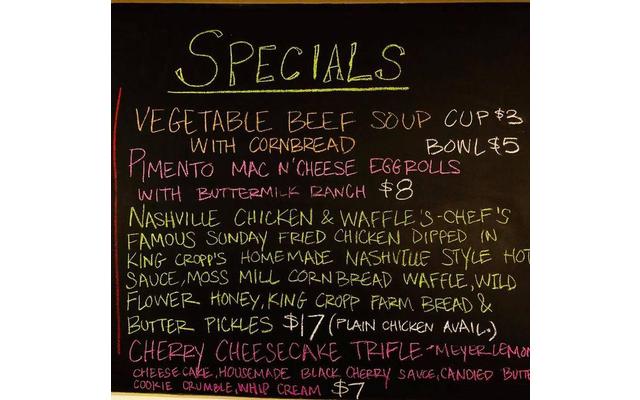 SPECIALS
VEGETABLE BEEF SOUP CUP $3
WITH CORNBREAD BOWL $5
PIMENTO MAC N' CHEESE EGGROLLS
WITH BUTTERMILK RANCH $8
NASHVILLE CHICKEN & WAFFLE'S - CHEF'S
FAMOUS SUNDAY FRIED CHICKEN DIPPED IN
KING CROPP'S HOMEMADE NASHVILLE STYLE HOT
SAUCE, MOSS MILL CORNBREAD WAFFLE, WILD
FLOWER HONEY, KING CROPP FARM BREAD &
BUTTER PICKLES $17 (PLAIN CHICKEN AVAIL.)
CHERRY CHEESECAKE TRIFLE - MEYER LEMON
CHEESECAKE, HOUSEMADE BLACK CHERRY SAUCE, CANDIED BUTTE
COOKIE CRUMBLE, WHIP CREAM $7